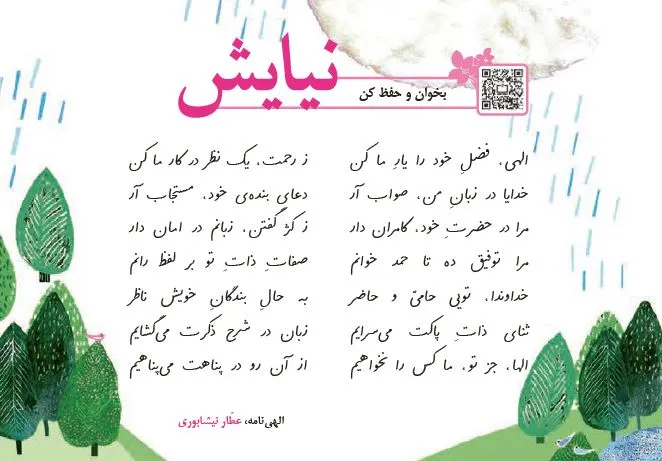 نیایش
بخوان و حفظ کن
الهی، فضلِ خود را یارِ ما کن ز رحمت، یک نظر در کار ما کن
خدایا در زبانِ من، صواب آر دعای بنده‌ی خود، مستجاب آر
مرا در حضرتِ خود، کامران دار ز کژ گفتن، زبانم در امان دار
مرا توفیق ده تا حمد خوانم صفاتِ ذاتِ تو بر لفظ رانم
خداوندا، تویی حامیّ و حاضر به حالِ بندگانِ خویش ناظر
ثنای ذاتِ پاکت می‌سرایم زبان در شرحِ ذکرت می‌گشایم
الها، جز تو، ما کس را نخواهیم از آن رو در پناهت می‌پناهیم
الهی‌نامه، عطّار نیشابوری